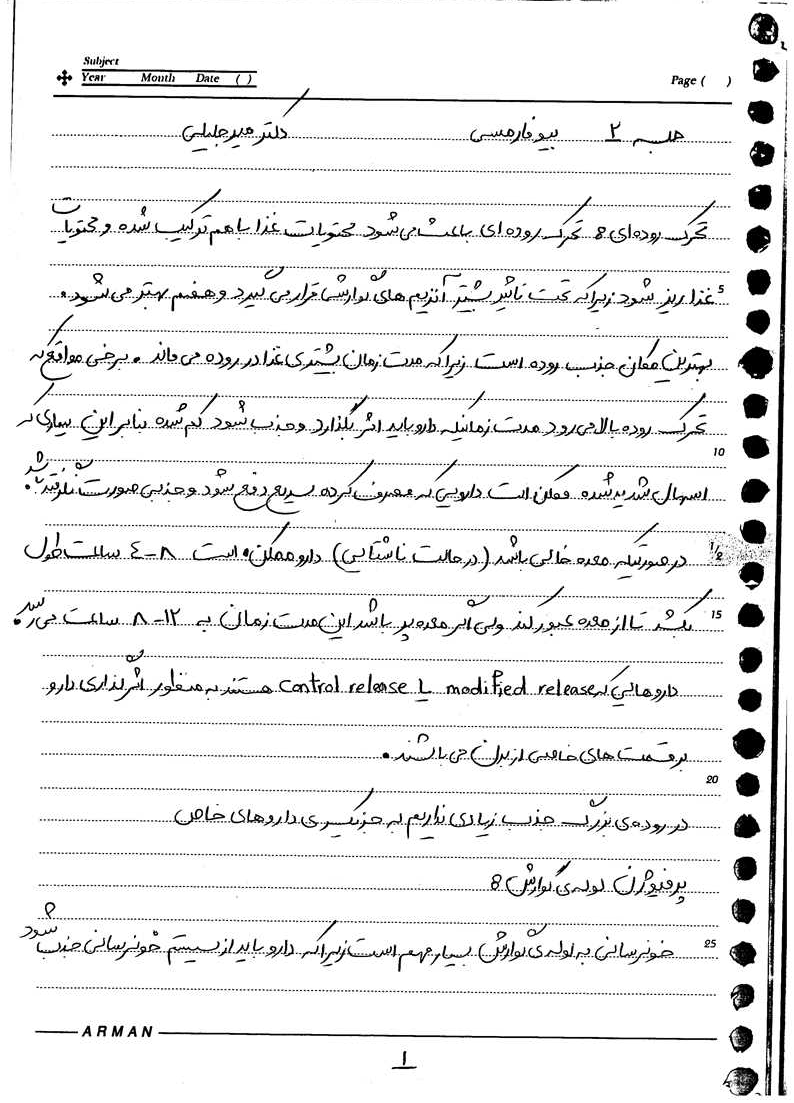 Subject
Year Month Date ( )
Page ( )
جلسه ۲ بیوفارمسی دکتر میرجلیلی
تحرک روده ای : تحرک روده ای باعث می شود محتویات غذا با هم ترکیب شده و محتویات
5 غذا ریز شود زیرا که تحت تاثیر بیشتر آنزیم های گوارشی قرار می گیرد و هضم بهتر می شود.
بهترین مکان جذب روده است زیرا که مدت زمان بیشتری غذا در روده می ماند . برخی مواقع که
تحرک روده بالا می رود مدت زمانیکه دارو باید اثر بگذارد و جذب شود کم شده بنابراین بیماری که
10
اسهال شدید شده ممکن است دارویی که مصرف کرده سریع دفع شود و جذبی صورت نگرفته باشد.
1/2 در صورتیکه معده خالی باشد (در حالت ناشتایی) دارو ممکن است ۸-۴ ساعت طول
15 بکشد تا از معده عبور کند ولی اگر معده پر باشد این مدت زمان به ۱۲-۸ ساعت می رسد.
داروهایی که modified release یا control release هستند به منظور اثرگذاری دارو
بر قسمت های خاصی از بدن می باشند.
20
در روده ی بزرگ جذب زیادی نداریم به جز یکسری داروهای خاص
پرفیوژن لوله ی گوارش :
25 خونرسانی به لوله ی گوارش بسیار مهم است زیرا که دارو باید از سیستم خونرسانی جذب شود
ARMAN
۱